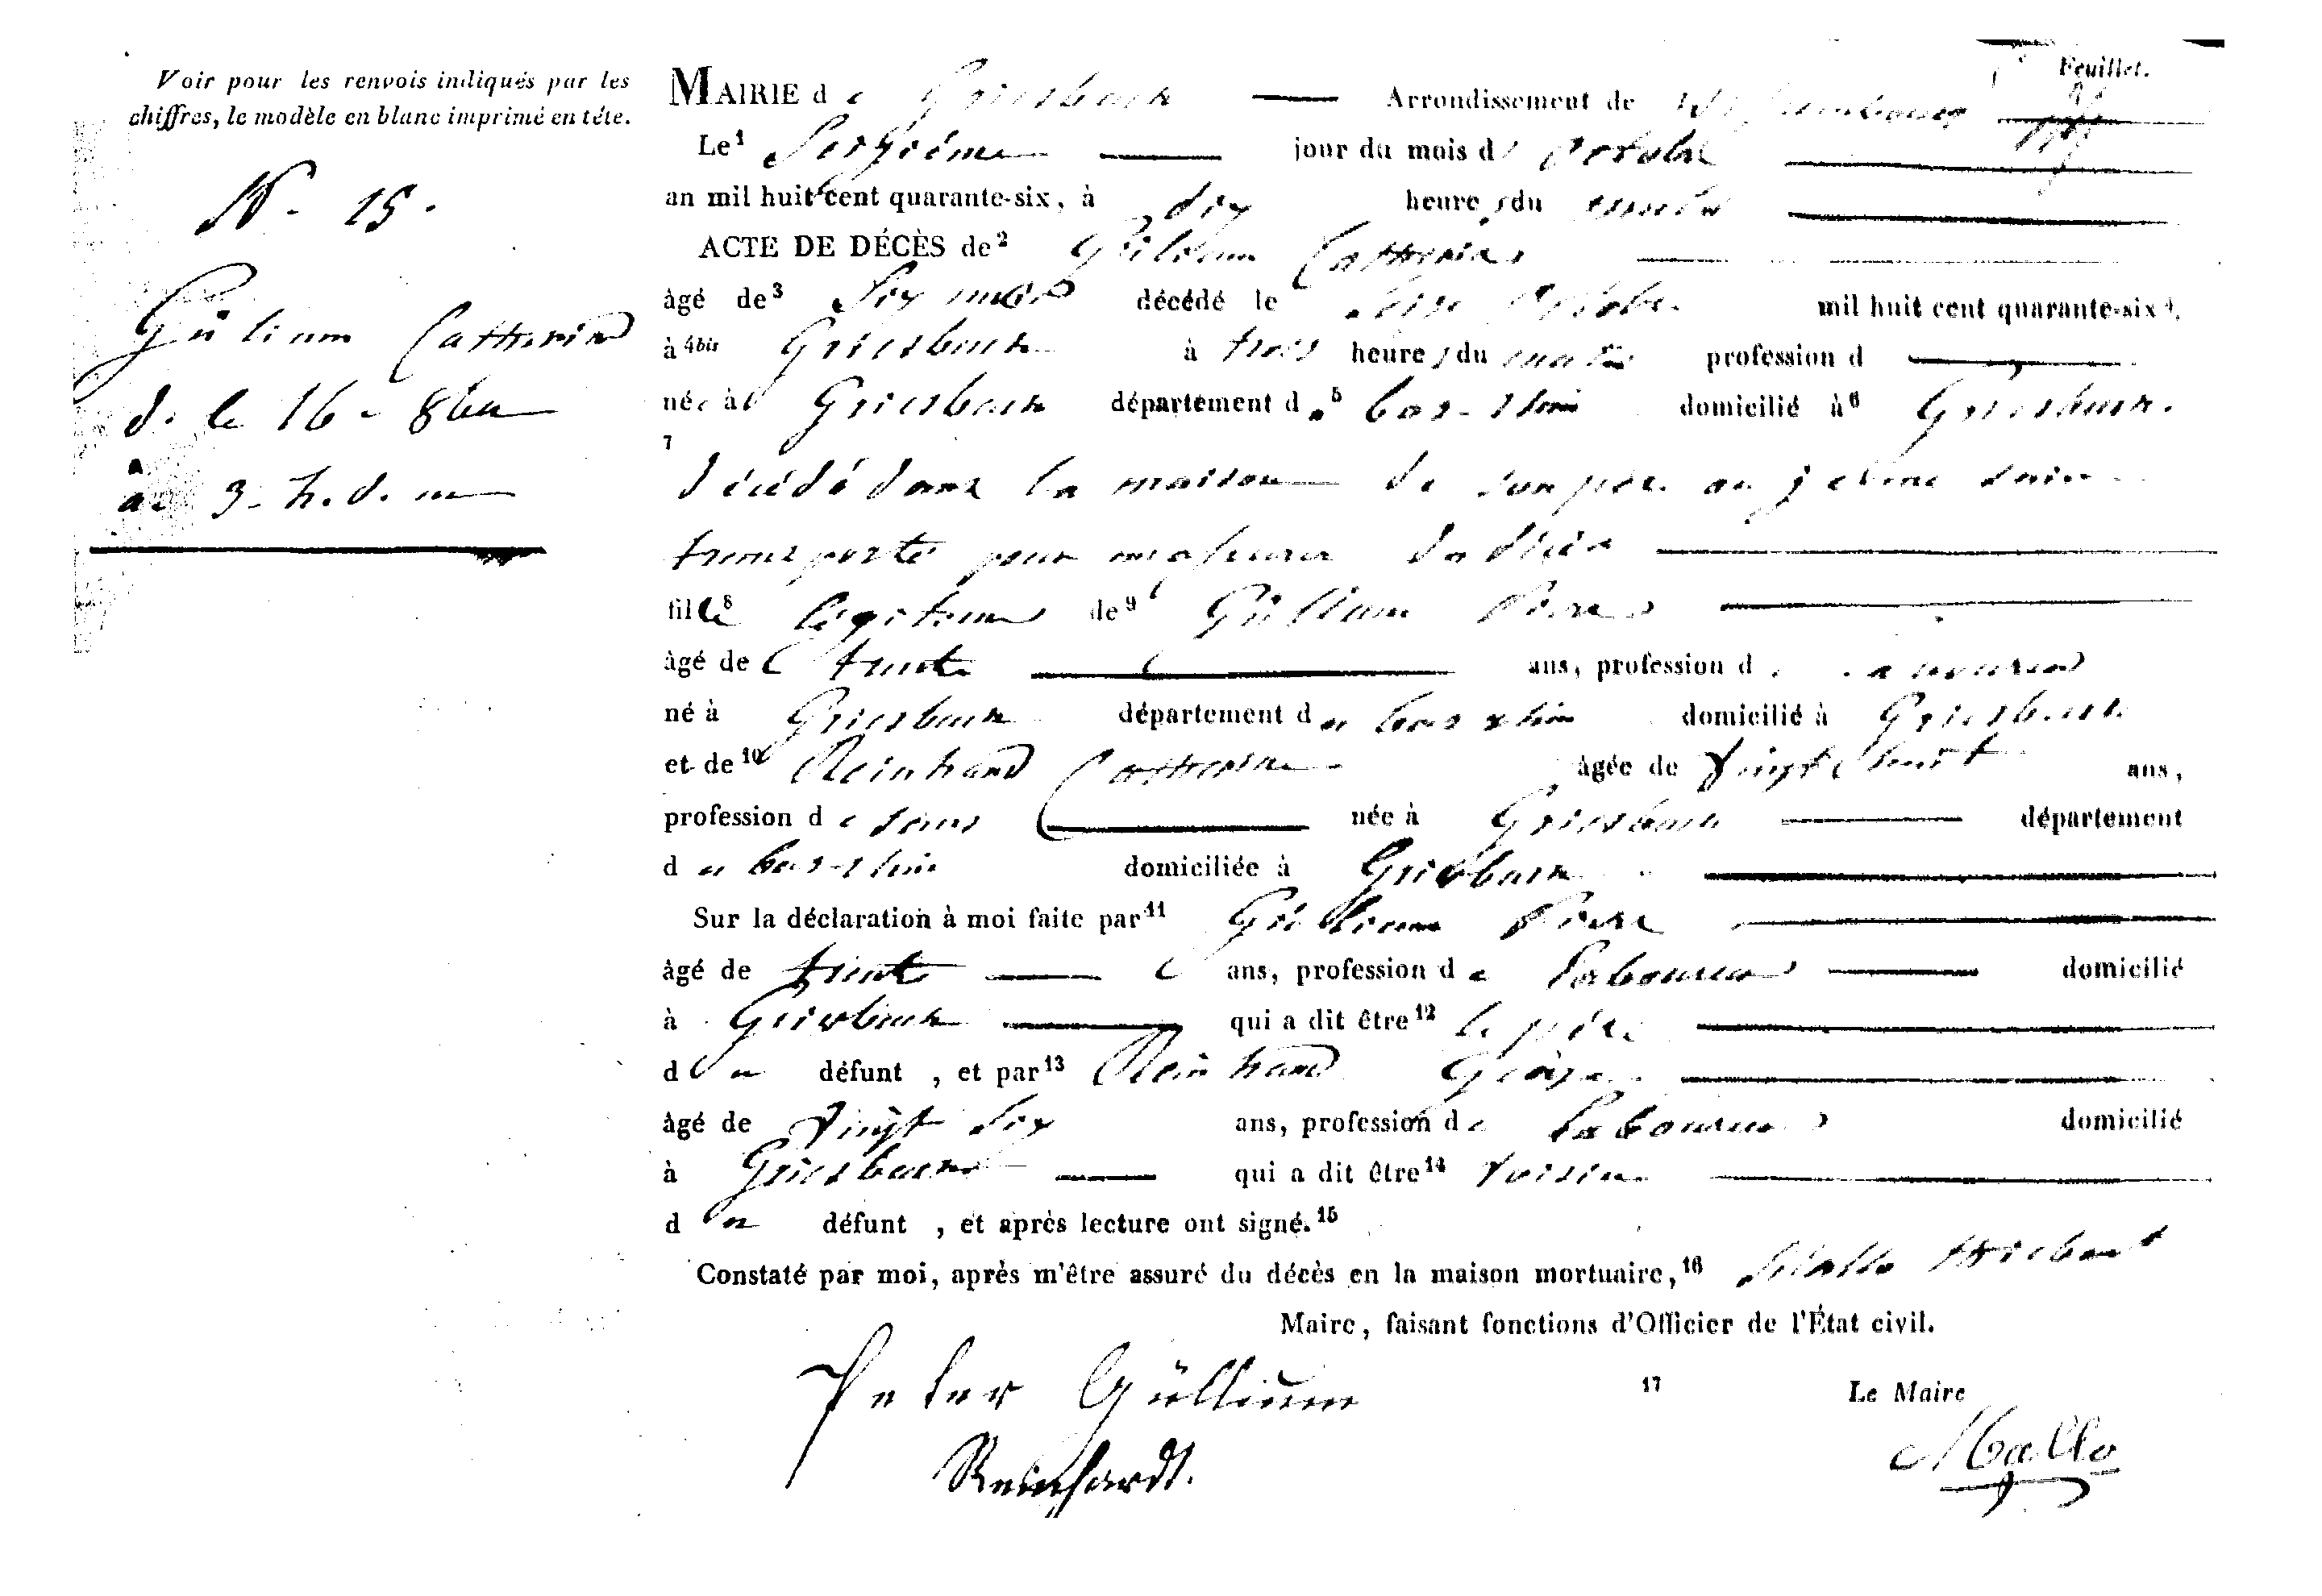 Voir pour les renvois indiqués par les
chiffres, le modèle en blanc imprimé en tête.
N - 15.
Gülium Catherine
d. le 16 - 8bre
à 3 - h. d. m
Feuillet.
MAIRIE de Griesbach Arrondissement de Wissembourg
Le 1 Seizième jour du mois d'octobre
an mil huit cent quarante-six, à dix heures du matin
ACTE DE DÉCÈS de 2 Gülium Catherine
âgé de 3 Six mois décédé le seize octobre mil huit cent quarante-six 4,
à 4bis Griesbach à trois heures du matin profession d
née à Griesbach département du 5 bas-rhin domicilié à 6 Griesbach.
7 décédé dans la maison de son père où je me suis
transporté pour m'assurer du décès
fille 8 légitime de 9 Güllium Pierre
âgé de trente ans, profession de laboureur
né à Griesbach département du bas rhin domicilié à Griesbach
et de 10 Reinhard Catherine âgée de vingt huit ans,
profession de sans née à Griesbach département
du bas-rhin domiciliée à Griesbach
Sur la déclaration à moi faite par 11 Gülium Pierre
âgé de trente ans, profession de laboureur domicilié
à Griesbach qui a dit être 12 le père
du défunt , et par 13 Reinhard George
âgé de vingt six ans, profession de laboureur domicilié
à Griesbach qui a dit être 14 voisin
du défunt , et après lecture ont signé. 15
Constaté par moi, après m'être assuré du décès en la maison mortuaire, 16 Mallo
Maire, faisant fonctions d'Officier de l'État civil.
Peter Güllium 17 Le Maire
Reinhardt. Mallo